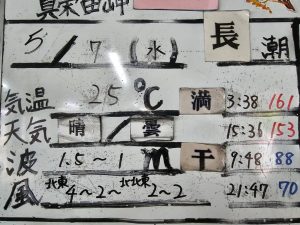 真栄田岬
5/7(水) 長潮
気温 25℃ 満 3:38 161
天気 晴/曇 15:36 153
波 1.5〜1m 干 9:48 88
風 北東4〜2〜北北東2〜2 21:47 70